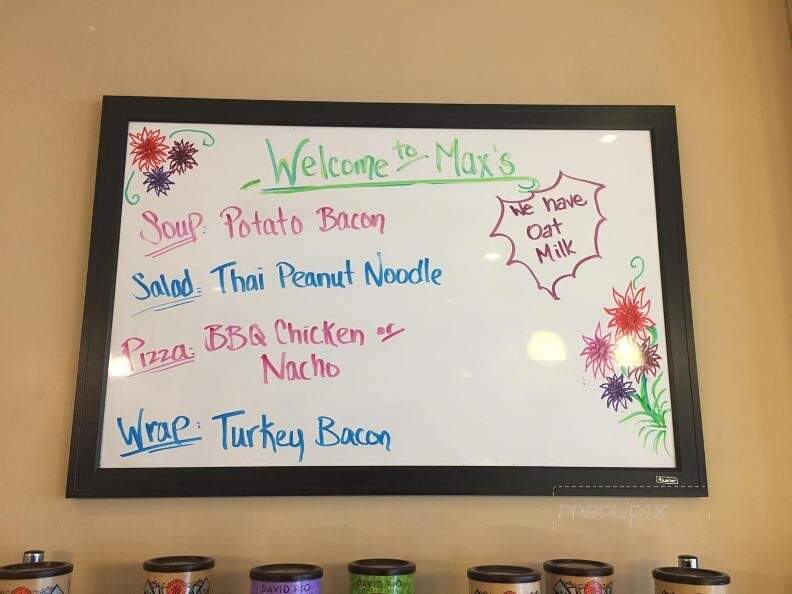 Welcome to Max's
We have
Oat
Milk
Soup: Potato Bacon
Salad: Thai Peanut Noodle
Pizza: BBQ Chicken or
Nacho
Wrap: Turkey Bacon
Quartet
menupix
DAVID RIO
DAVID RIO